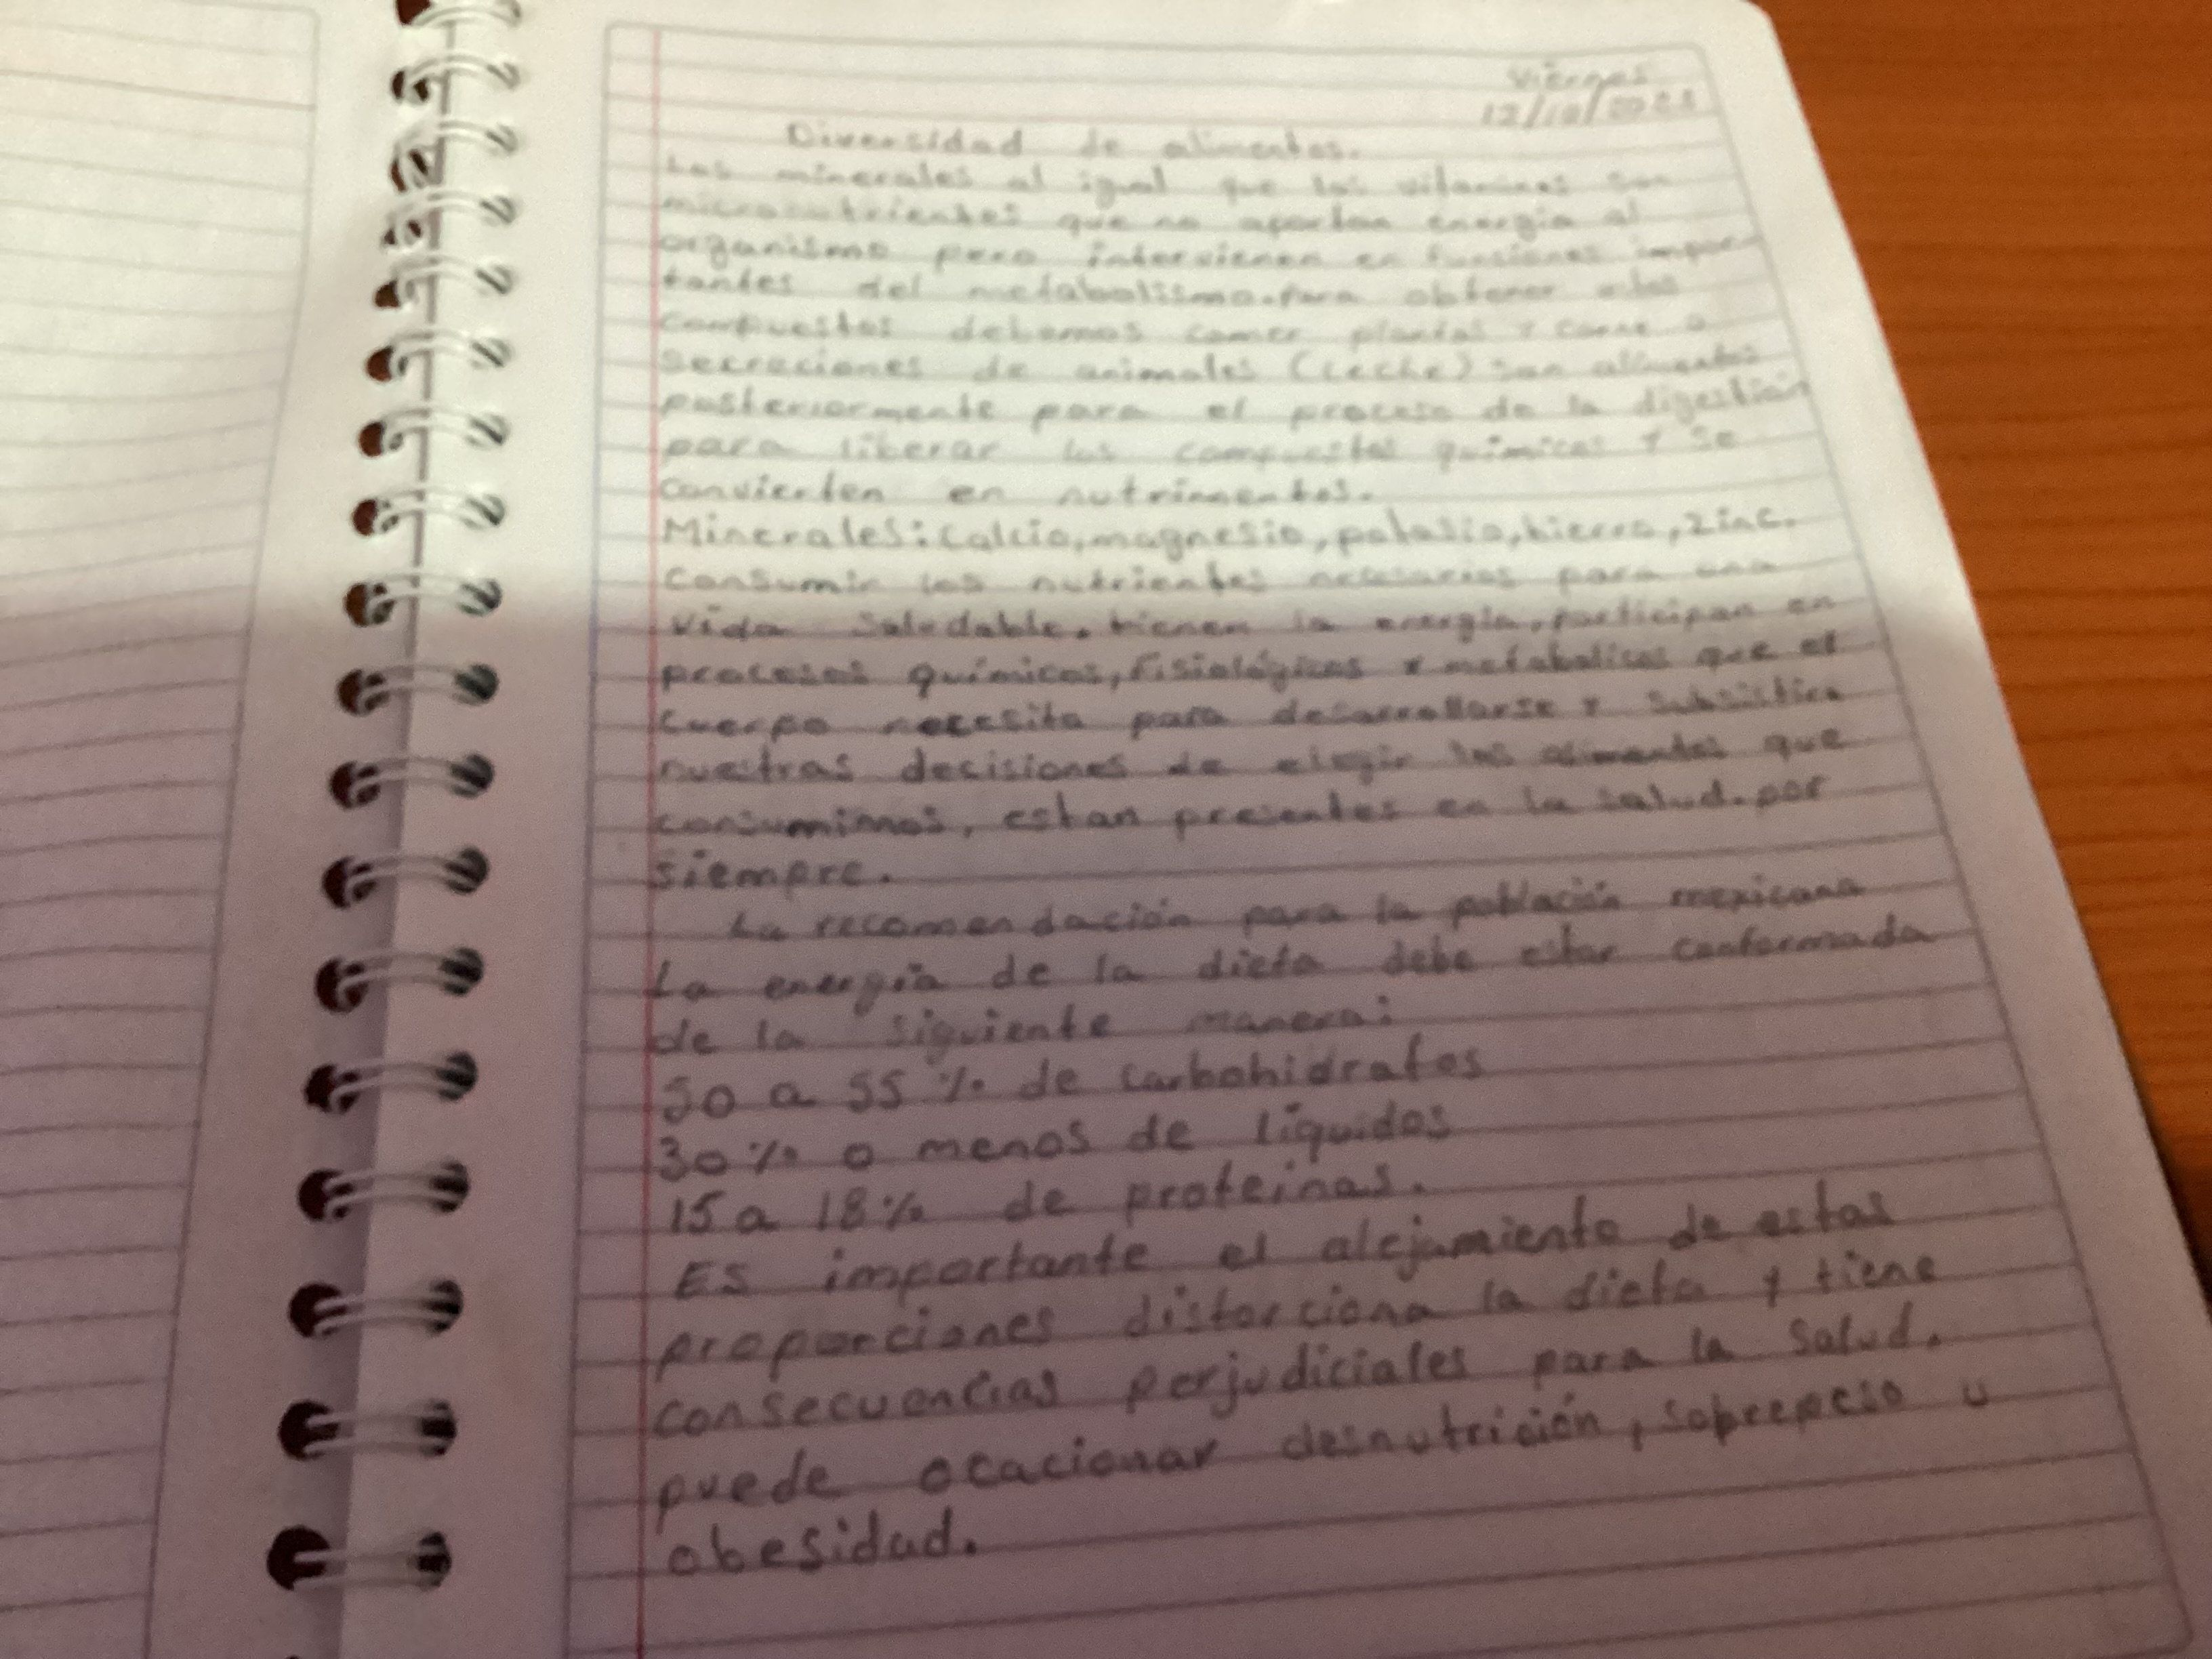 Viernes
12/10/2023
Diversidad de alimentos.
Los minerales al igual que las vitaminas son
micronutrientes que no aportan energía al
organismo pero intervienen en funciones impor
tantes del metabolismo. Para obtener estos
compuestos debemos comer plantas y carne o
secreciones de animales (Leche) son alimentos
posteriormente para el proceso de la digestión
para liberar los compuestos químicos y se
convierten en nutrimentos.
Minerales: calcio, magnesio, potasio, hierro, zinc.
Consumir los nutrientes necesarios para una
vida saludable. tienen la energía, participan en
procesos químicos, fisiológicos y metabolicos que el
cuerpo necesita para desarrollarse y
nuestras decisiones de elegir los alimentos que
consumimos, estan presentes en la salud. por
siempre.
La recomendación para la población mexicana
La energía de la dieta debe estar conformada
de la siguiente manera:
50 a 55 % de carbohidratos
30% o menos de líquidos
15 a 18% de proteinas.
Es importante el alejamiento de estas
proporciones distorciona la dieta y tiene
consecuencias perjudiciales para la salud.
puede ocacionar desnutrición, sobrepeso u
obesidad.